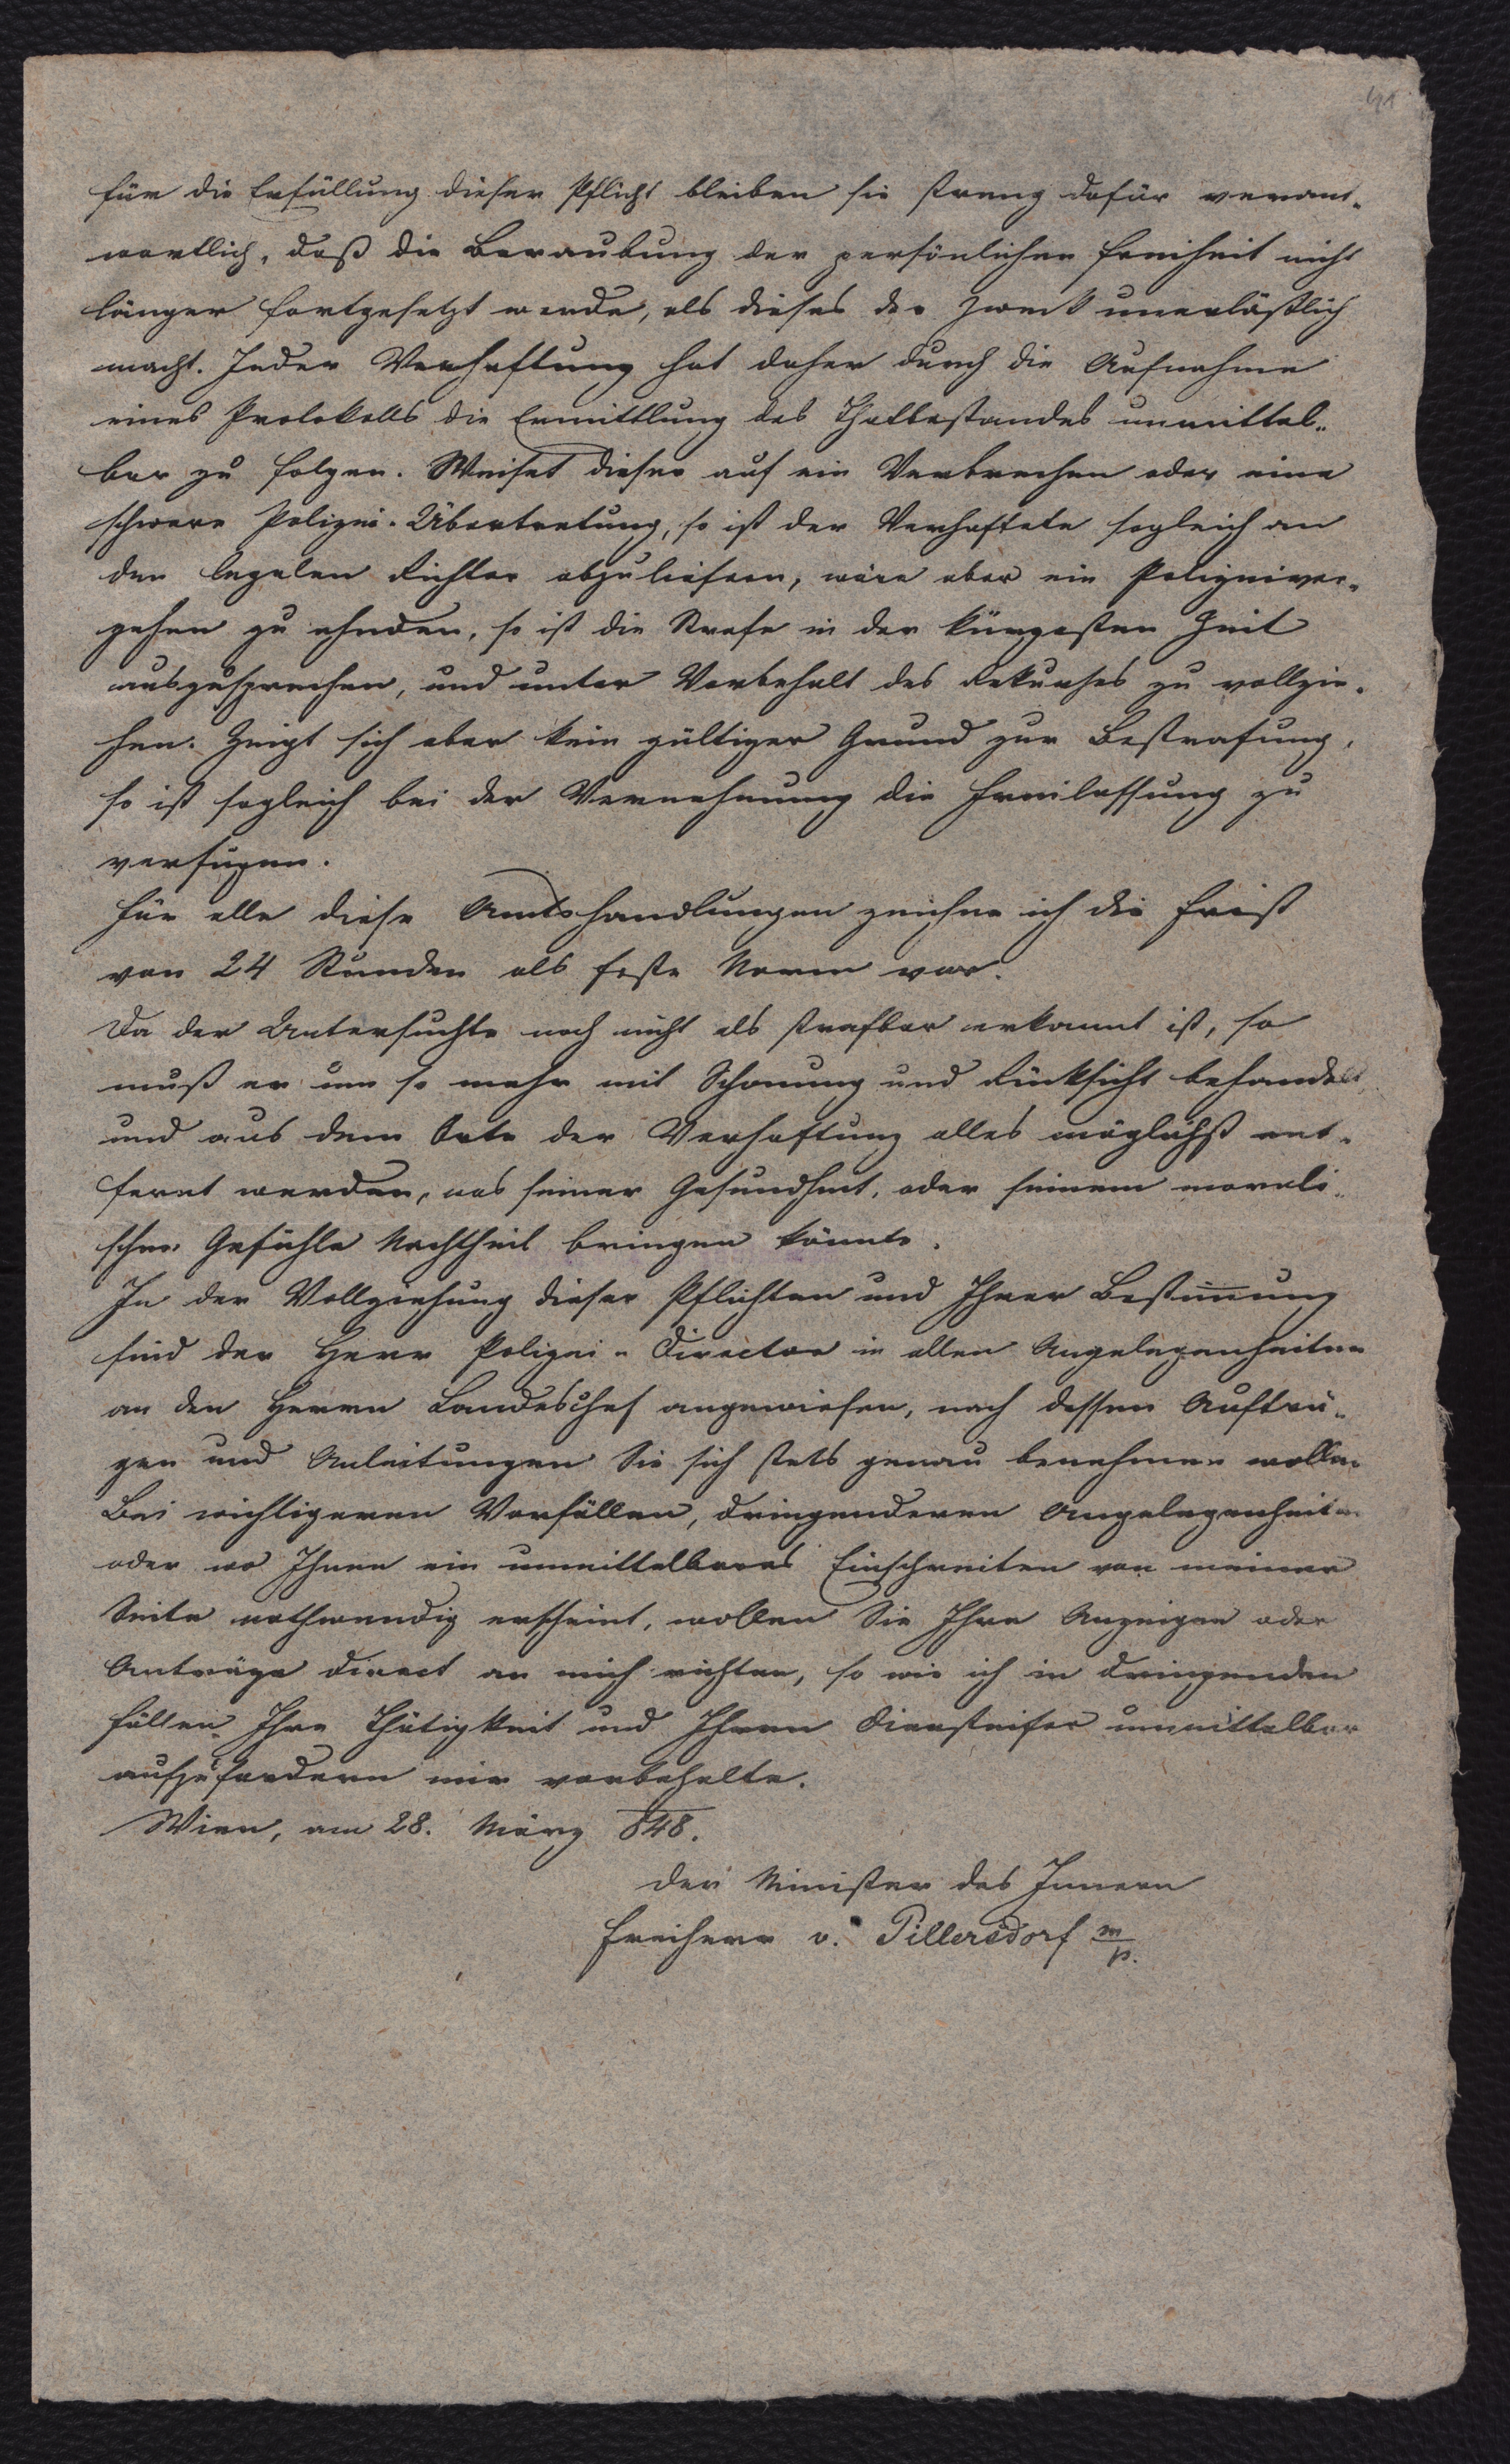 41
für die Erfüllung dieser Pflicht bleiben sie streng dafür verant-
wortlich, daß die Beraubung der persönlichen Freiheit nicht
länger fortgesetzt werde, als dieses der Zweck unerläßlich
macht. Jeder Verhaftung hat daher durch die Aufnahme
eines Protokolls die Ermittlung des Thatbestandes unmittel-
bar zu folgen. Weiset dieser auf ein Verbrechen oder eine
schwere Polizei-Übertretung, so ist der Verhaftete sogleich an
den legalen Richter abzuliefern, wäre aber ein Polizeiver-
gehen zu ahnden, so ist die Strafe in der kürzesten Zeit
auszusprechen, und unter Vorbehalt des Rekurses zu vollzie-
hen. Zeigt sich aber kein gültiger Grund zur Bestrafung,
so ist sogleich bei der Vernehmung die Freilassung zu
verfügen.
Für alle diese Amtshandlungen zeichne ich die Frist
von 24 Stunden als feste Norm vor.
Da der Untersuchte noch nicht als strafbar erkannt ist, so
muß er um so mehr mit Schonung und Rücksicht behandelt,
und aus dem Orte der Verhaftung alles möglichst ent-
fernt werden, was seiner Gesundheit, oder seinem morali-
schen Gefühle Nachtheil bringen könnte.
In der Vollziehung dieser Pflichten und Ihrer Bestim̅ung
sind der Herr Polizei-Director in allen Angelegenheiten
an den Herrn Landeschef angewiesen, nach dessen Aufträ-
gen und Anleitungen Sie sich stets genau benehmen wollen.
Bei wichtigeren Vorfällen, dringenderen Angelegenheiten
oder wo Ihnen ein unmittelbares Einschreiten von meiner
Seite nothwendig erscheint, wollen Sie Ihre Anzeigen oder
Anträge direct an mich richten, so wie ich in dringenden
Fällen Ihre Thätigkeit und Ihren Diensteifer unmittelbar
aufzufordern mir vorbehalte.
Wien, am 28. März 848.
Der Minister des Innern
Freiherr v. Pillersdorf m/p.